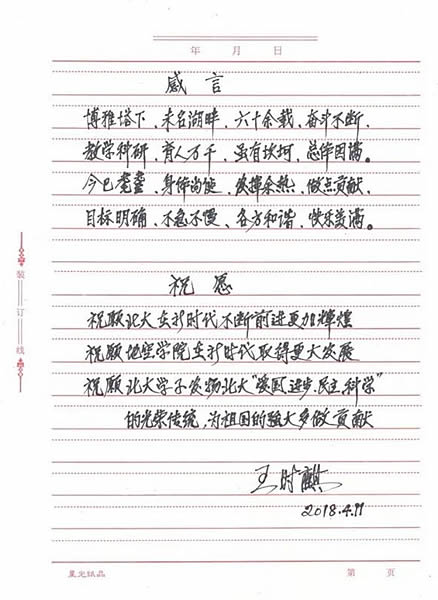 年 月 日
感言
博雅塔下、未名湖畔、六十余载、奋斗不断、
教学科研、育人万千、虽有坎坷、总体圆满。
今已耄耋、身体尚健、发挥余热、做点贡献、
目标明确、不急不慢、各方和谐、快乐美满。
祝愿
祝愿北大在新时代不断前进更加辉煌
祝愿地空学院在新时代取得更大发展
祝愿北大学子发扬北大“爱国、进步、民主、科学”
的光荣传统，为祖国的强大多做贡献
王时麒
2018.4.11
装订线
星光纸品
第 页